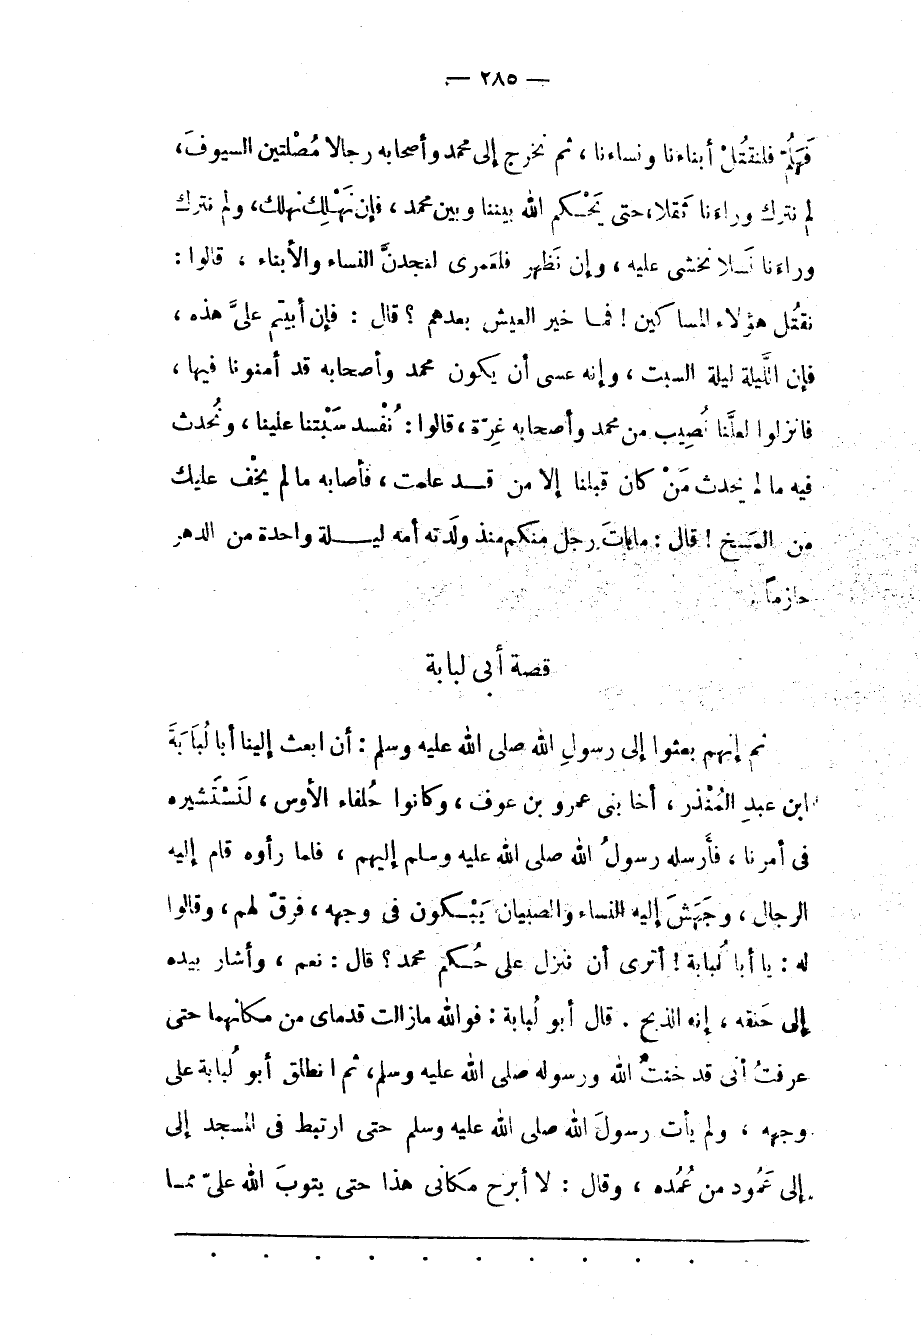 — ٢٨٥ —
فَهَلُمّ فلنقتُلْ أبناءنا ونساءنا ، ثم نخرج إلى محمد وأصحابه رجالا مُصْلتين السيوفَ،
لم نترك وراءنا ثَقلا، حتى يَحْكم الله بيننا وبين محمد ، فإن نَهْلِك نهلك، ولم نترك
وراءنا نَسلا نخشى عليه ، وإن نَظهر فلعَمرى لنجدنَّ النساء والأبناء ، قالوا :
نقتُل هؤلاء المساكين ! فما خير العيش بعدهم ؟ قال : فإن أبيتم علىَّ هذه ،
فإن اللَّيلة ليلة السبت ، وإنه عسى أن يكون محمد وأصحابه قد أمنونا فيها ،
فانزلوا لعلَّنا نُصِيب من محمد وأصحابه غِرّة ، قالوا : نُفْسد سَبْتنا علينا ، ونُحدث
فيه ما لم يحدث مَنْ كان قبلنا إلا من قد علمت ، فأصابه ما لم يخْف عليك
من المَسخ ! قال : ما باتَ رجل منكم منذ ولَدته أمه ليلة واحدة من الدهر
حازماً .
قصة أبى لبابة
ثم إنهم بعثوا إلى رسولِ الله صلى الله عليه وسلم : أن ابعث إلينا أبا لُبَابَةَ
ابن عبدِ المُنْذر ، أخا بنى عمرو بن عوف ، وكانوا حُلفاء الأوس ، لنَسْتَشيره
فى أمرنا ، فأَرسله رسولُ الله صلى الله عليه وسلم إليهم ، فلما رأوه قام إليه
الرجال ، وجَهَشَ إليه النساء والصبيان يَبْكون فى وجهه ، فرقّ لهم ، وقالوا
له : يا أبا لُبابة ! أترى أن ننزل على حُكم محمد ؟ قال : نعم ، وأشار بيده
إلى حَلقه ، إنه الذبح . قال أبو لُبابة : فوالله مازالت قدماى من مكانهما حتى
عرفتُ أنى قد خنتُ الله ورسوله صلى الله عليه وسلم، ثم انطلق أبو لُبابة على
وجهه ، ولم يأت رسولَ الله صلى الله عليه وسلم حتى ارتبط فى المسجد إلى
إلى عَمُود من عُمُده ، وقال : لا أبرح مكانى هذا حتى يتوبَ الله علىّ مما